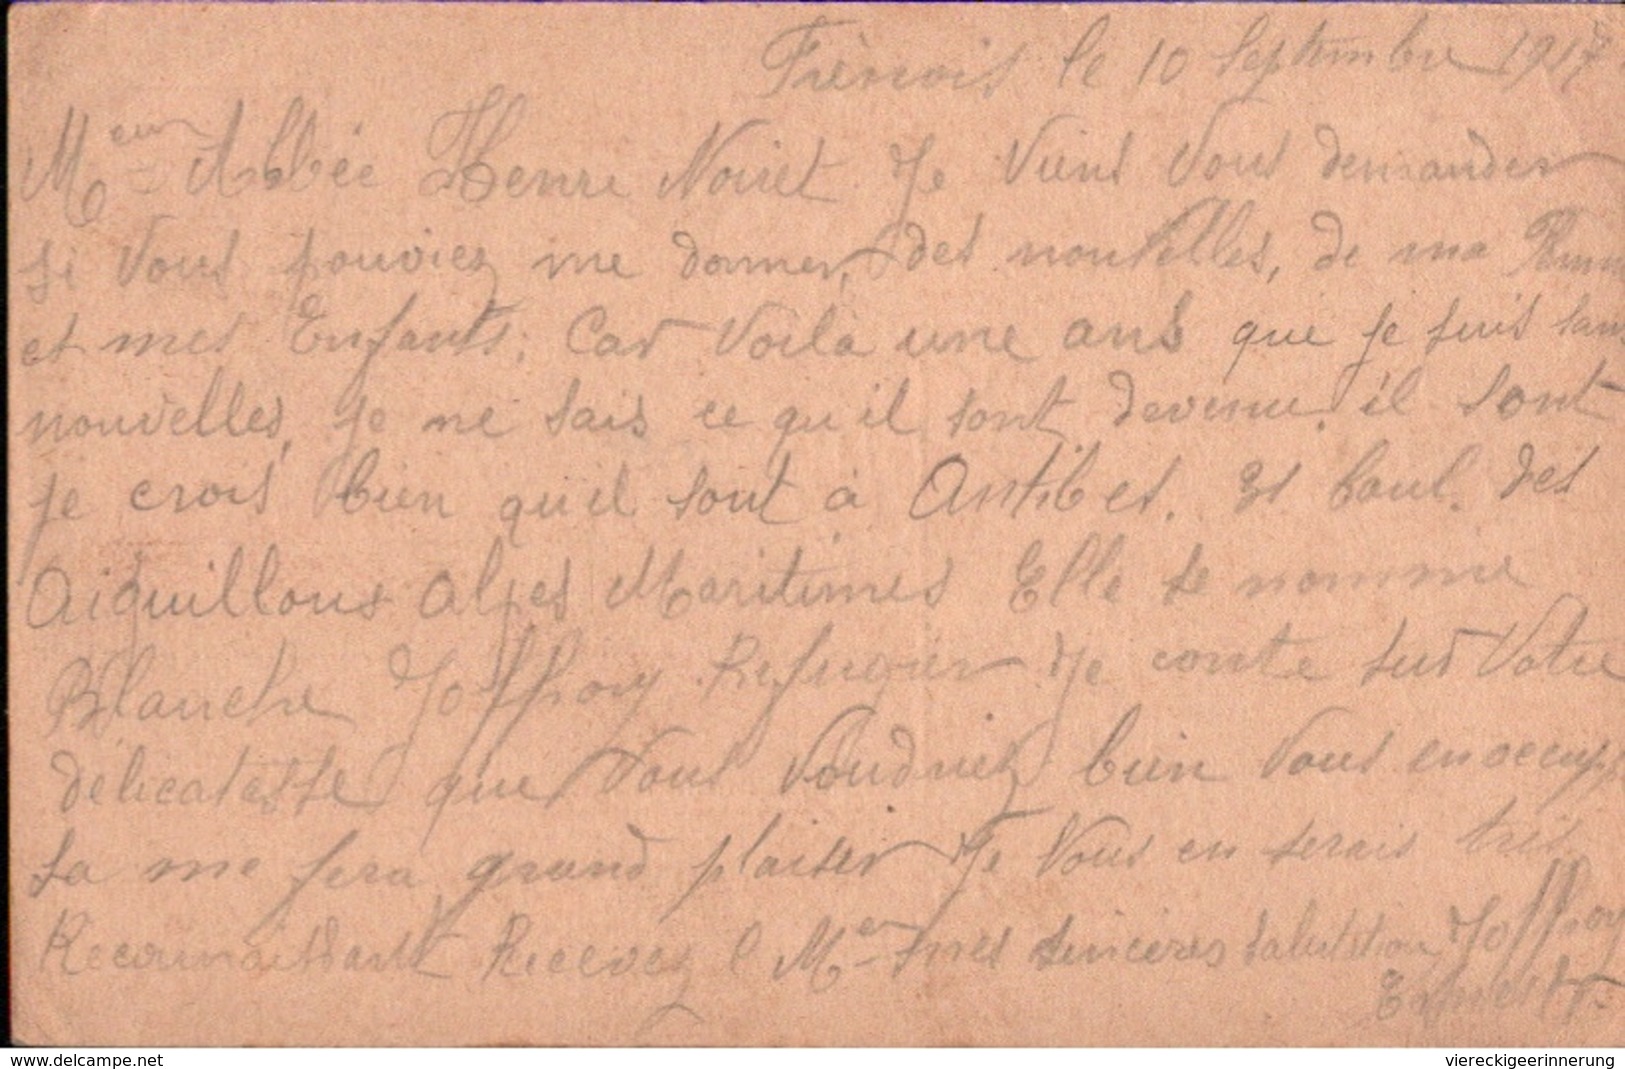 Frénois le 10 Septembre 1917
Meur Abbée Henre Noiret. Je Viens Vous demander
si Vous pouviez me donner, des nouvelles, de ma Femm
et mes Enfants. Car Voila une ans que je suis sans
nouvelles, je ne sais ce qu'il sont devenu. il sont
je crois bien qu'il sont à Antibes. St Paul. des
Aiguillons Alpes Maritimes Elle se nomme
Blanche Joffroy Refugier Je conte sur Votre
délicatesse que Vous Voudriez bien Vous en occup
sa me fera grand plaisir Je Vous en serais très
Reconnaissant Recevez Mer mes sincères salutation Joffroy
Ernest
delcampe.net
viereckigeerinnerung